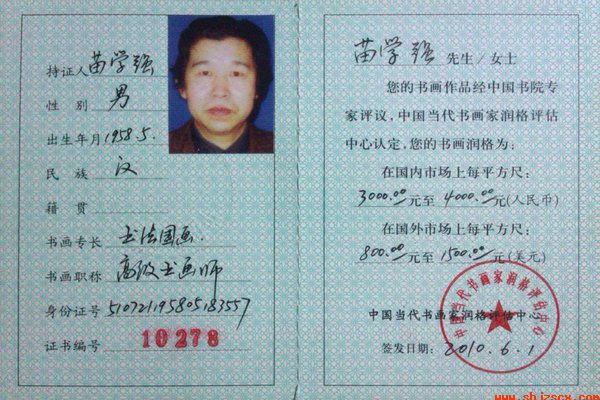 持证人 苗学强
性 别 男
出生年月 1958.5.
民 族 汉
籍 贯
书画专长 书法国画.
书画职称 高级书画师
身份证号 510721195805183557
证书编号 10278
苗学强 先生/女士
您的书画作品经中国书院专
家评议,中国当代书画家润格评估
中心认定,您的书画润格为:
在国内市场上每平方尺:
3000.00元至 4000.00元(人民币)
在国外市场上每平方尺:
800.00元至1500.00元(美元)
中国当代书画家润格评估中心
中国当代书画家润格评估中心
签发日期: 2010.6.1
www.shjzscx.com